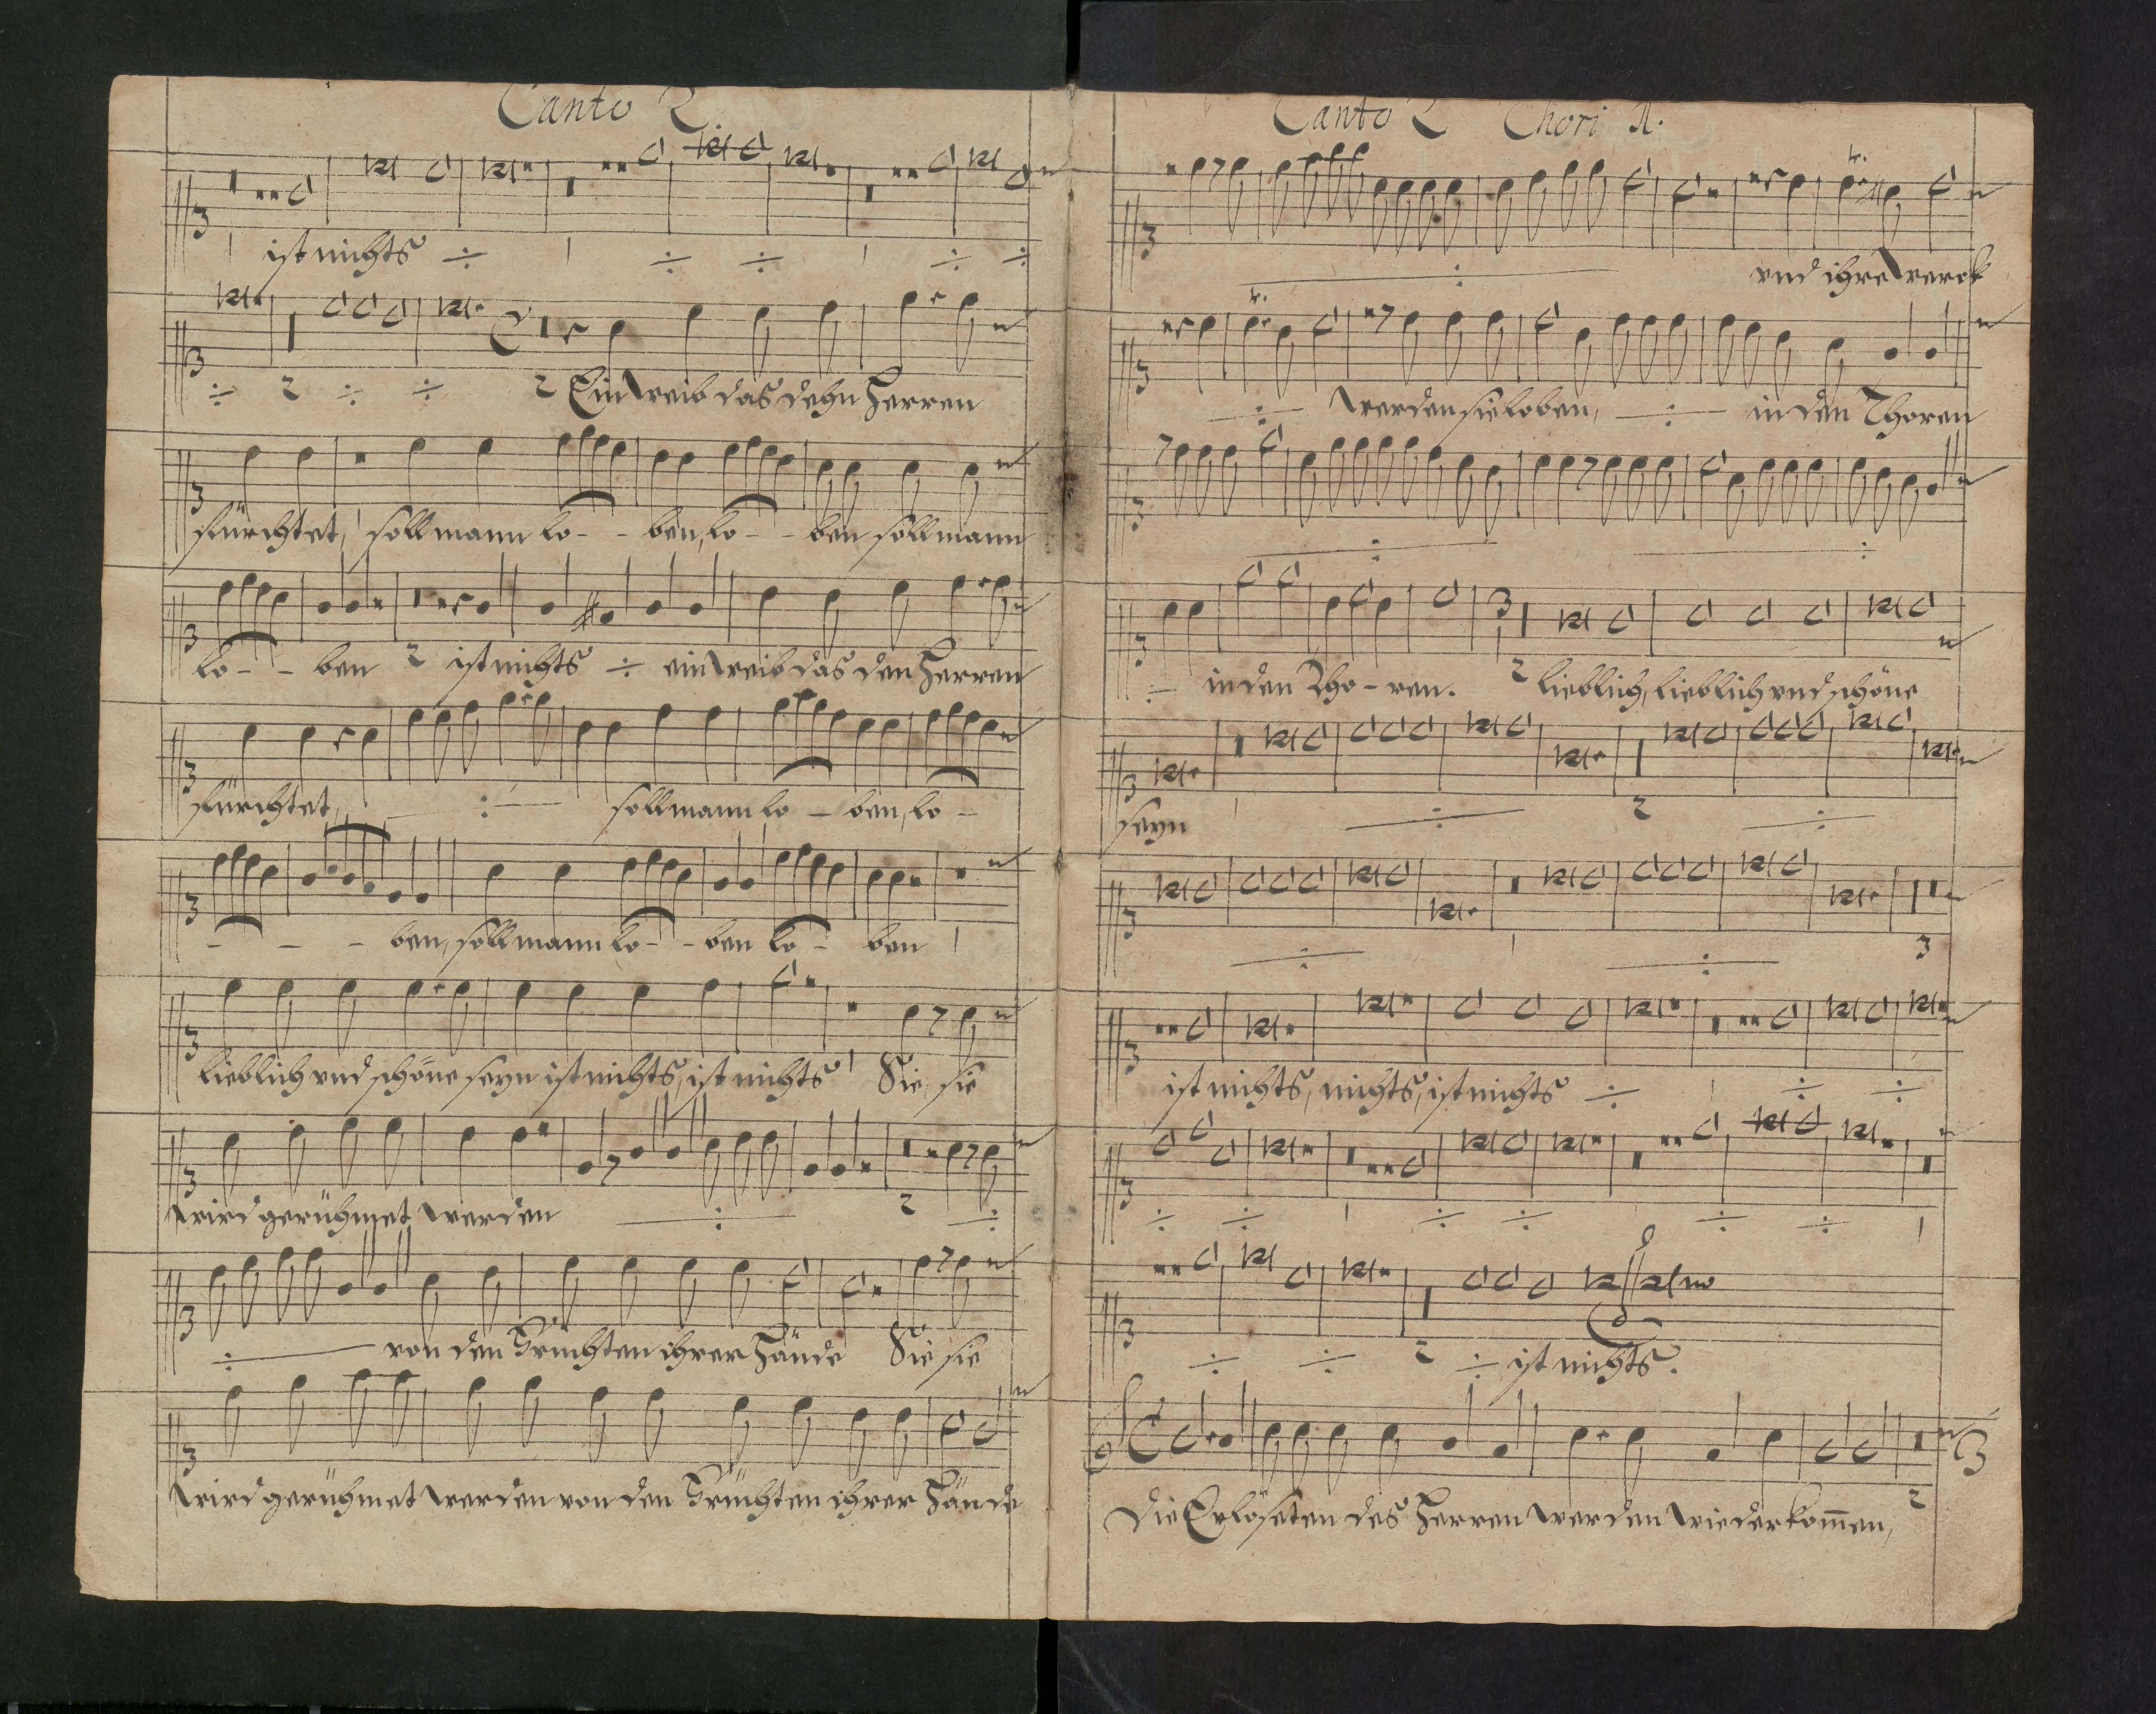 Canto 2.
ist nichts ÷ ÷ ÷ ÷ ÷
÷ 2 ÷ ÷ 2 Ein weib das dehn Herren
fürchtet, soll mann lo - - ben, lo - - ben soll mann
lo - - ben 2 ist nichts ÷ ein weib das den Herren
fürchtet, ÷ soll mann lo - ben, lo -
- - - ben, soll mann lo - - ben lo - ben
lieblich vnd schöne seyn ist nichts, ist nichts Sie, sie
wird gerühmet werden ÷ 2 ÷
÷ von den Früchten ihrer Hände Sie sie
wird gerühmet werden von den Früchten ihrer Hände
Canto 2 Chori 1.
÷ vnd ihre werck
÷ werden sie loben, ÷ in den Thoren
÷ ÷
÷ in den Tho - ren. 2 lieblich, lieblich vnd schöne
seyn ÷ 2 ÷
÷ ÷ 3
ist nichts, nichts, ist nichts ÷ ÷ ÷
÷ ÷ ÷ ÷ ÷ ÷
÷ ÷ 2 ÷ ist nichts.
Die Erlöseten des Herren werden wiederkom̄en, 2